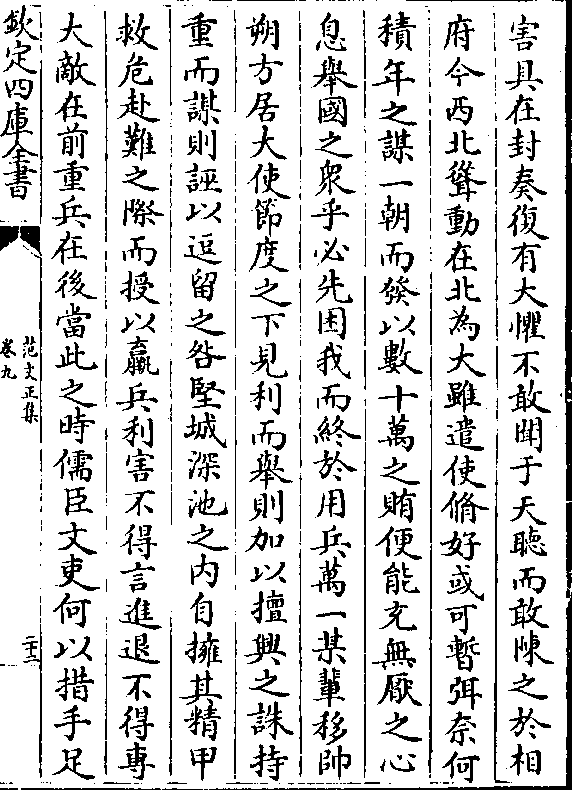 害具在封奏復有大懼不敢聞于天聽而敢陳之於相
府今西北聳動在北為大雖遣使脩好或可暫弭奈何
積年之謀一朝而發以數十萬之賄便能充無厭之心
息舉國之衆乎必先困我而終於用兵萬一某輩移帥
朔方居大使節度之下見利而舉則加以擅興之誅持
重而謀則誣以逗留之咎堅城深池之内自擁其精甲
救危赴難之際而授以羸兵利害不得言進退不得專
大敵在前重兵在後當此之時儒臣文吏何以措手足
欽定四庫全書
范文正集
卷九
二十三